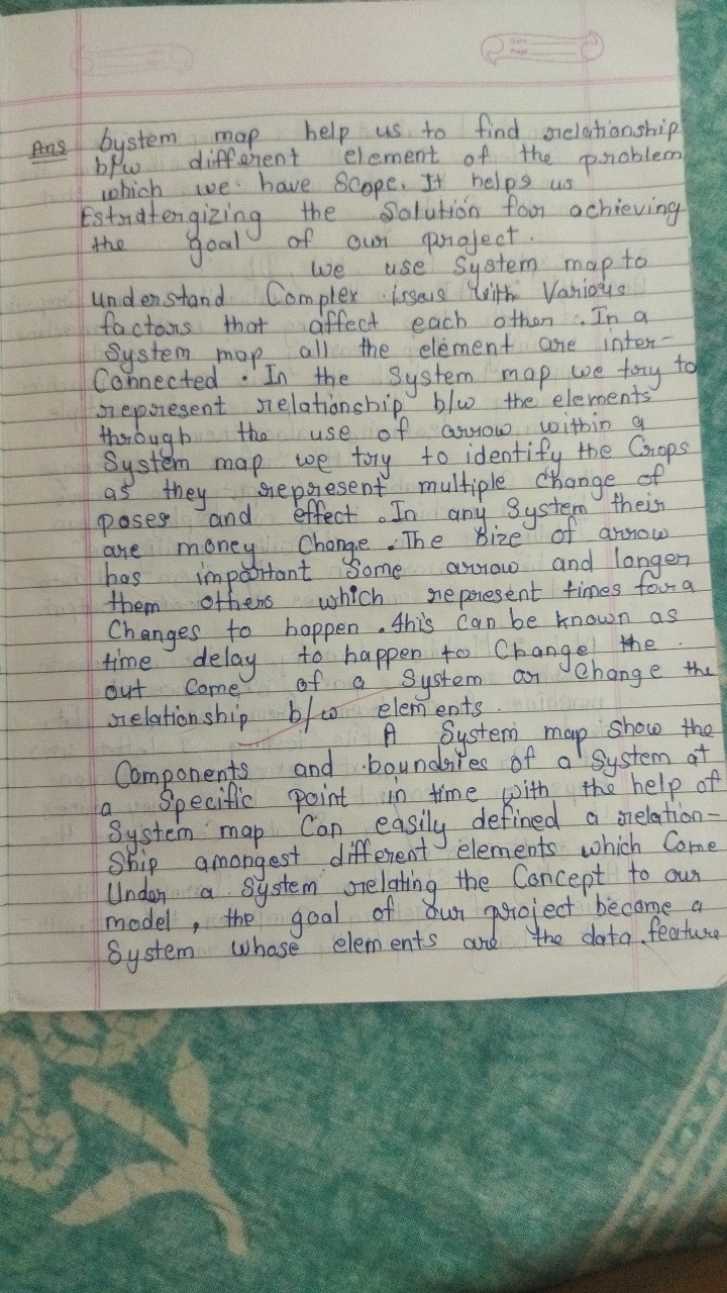 Ans System map help us to find relationship
b/w different element of the problem
which we have Scope. It helps us
Estratergizing the Solution for achieving
the goal of our project.
We use System map to
understand Complex issaus with Various
factors that affect each other. In a
System map all the element are inter-
Connected. In the System map we try to
represent relationship b/w the elements
through the use of arrow within a
System map we try to identify the Crops
as they represent multiple change of
poses and effect. In any System their
are money Change. The Size of arrow
has important Some arrow and longer
them others which represent times for a
Changes to happen. this can be known as
time delay to happen to Change the
out come of a System or Change the
relationship b/w elements.
A System map Show the
Components and boundries of a System at
a Specific point in time with the help of
System map Can easily defined a relation-
Ship amongest different elements which Come
Under a System relating the Concept to our
model, the goal of our project become a
System whose elements are the data feature